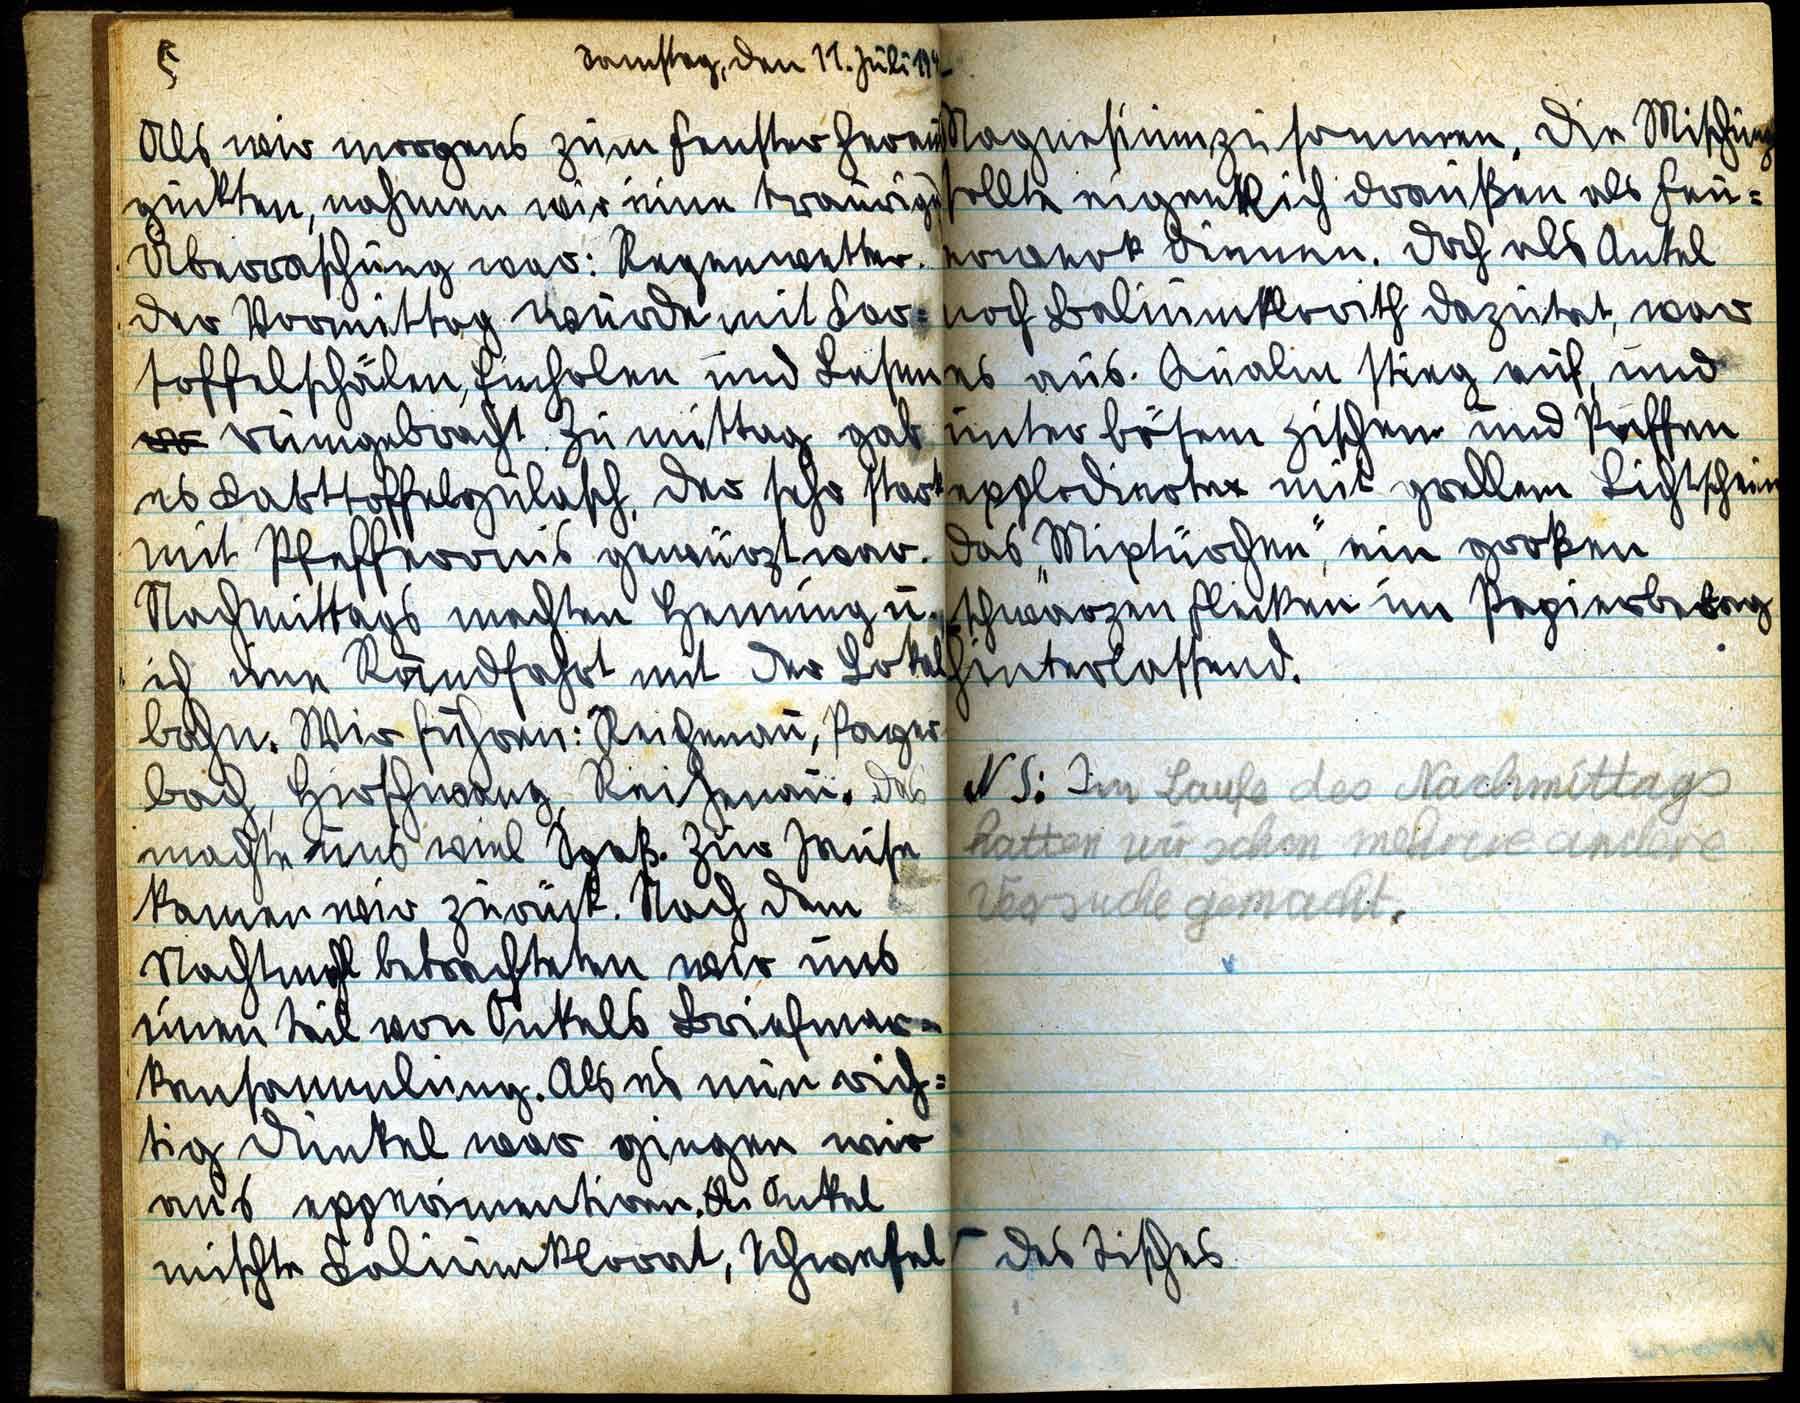 5
Samstag, den 11. Juli 194
Als wir morgens zum Fenster heraus
guckten, nahmen wir eine traurige
Überraschung war: Regenwetter.
Der Vormittag wurde mit Kar=
toffelschälen, Einholen und Lesen
rumgebracht. Zu mittag gab
es Karttoffelgulasch, der sehr stark
mit Pfefferonis gewürzt war.
Nachmittags machten Henning u.
ich eine Rundfahrt mit der Lokal
bahn. Wir fuhren: Reichenau, Payer
bach, Hirschwang, Reichenau. Das
machte uns viel Spaß. Zur Jause
kamen wir zurück. Nach dem
Nachtmahl betrachteten wir uns
einen Teil von Onkels Briefmar=
kensammlung. Als es nun rich=
tig dunkel war gingen wir
ans expperimentiren. Onkel
mischte Kaliumklorat, Schwefel
Magnesium zusammen. Die Mischung
sollte eigentlich draußen als Feu=
erwerk dienen. Doch als Onkel
noch Kaliumklorith dazutat, war
es aus. Qualm stieg auf, und
unter bösem zischen und Puffen
expplodierte mit grellem Lichtschein
das "Mixtürchen", ein großen
schwarzen Flecken im Papierbelag
hinterlassend.
NS: Im Laufe des Nachmittags
hatten wir schon mehrere andere
Versuche gemacht.
- des Tisches